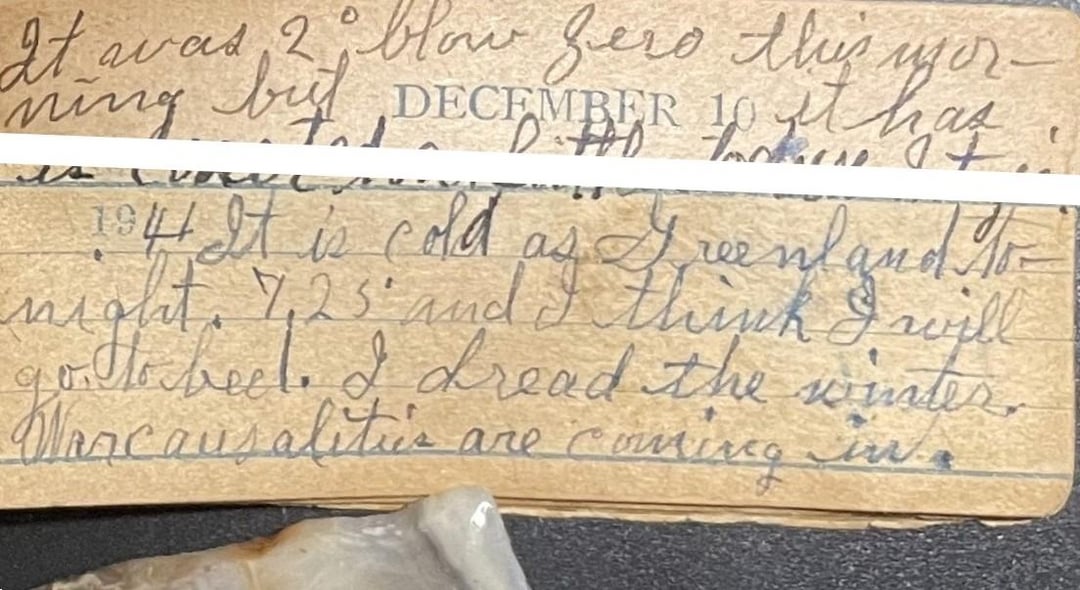 It was 2° blow zero this mor-
ning but DECEMBER 10 it has
1941 It is cold as Greenland to-
night. 7,25 and I think I will
go. to bed. I dread the winter.
War causalities are coming in.